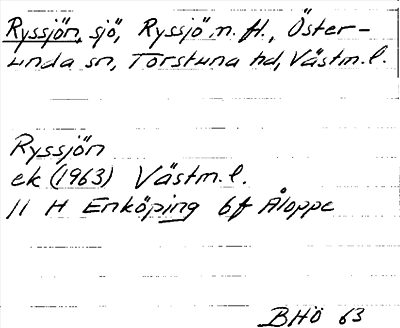 Ryssjön, sjö, Ryssjö, n. fl., Öster-
unda sn, Torstuna hd, Västm. l.
Ryssjön
ek (1963) Västm. l.
11 H Enköping 6f Åloppe
BHÖ 63